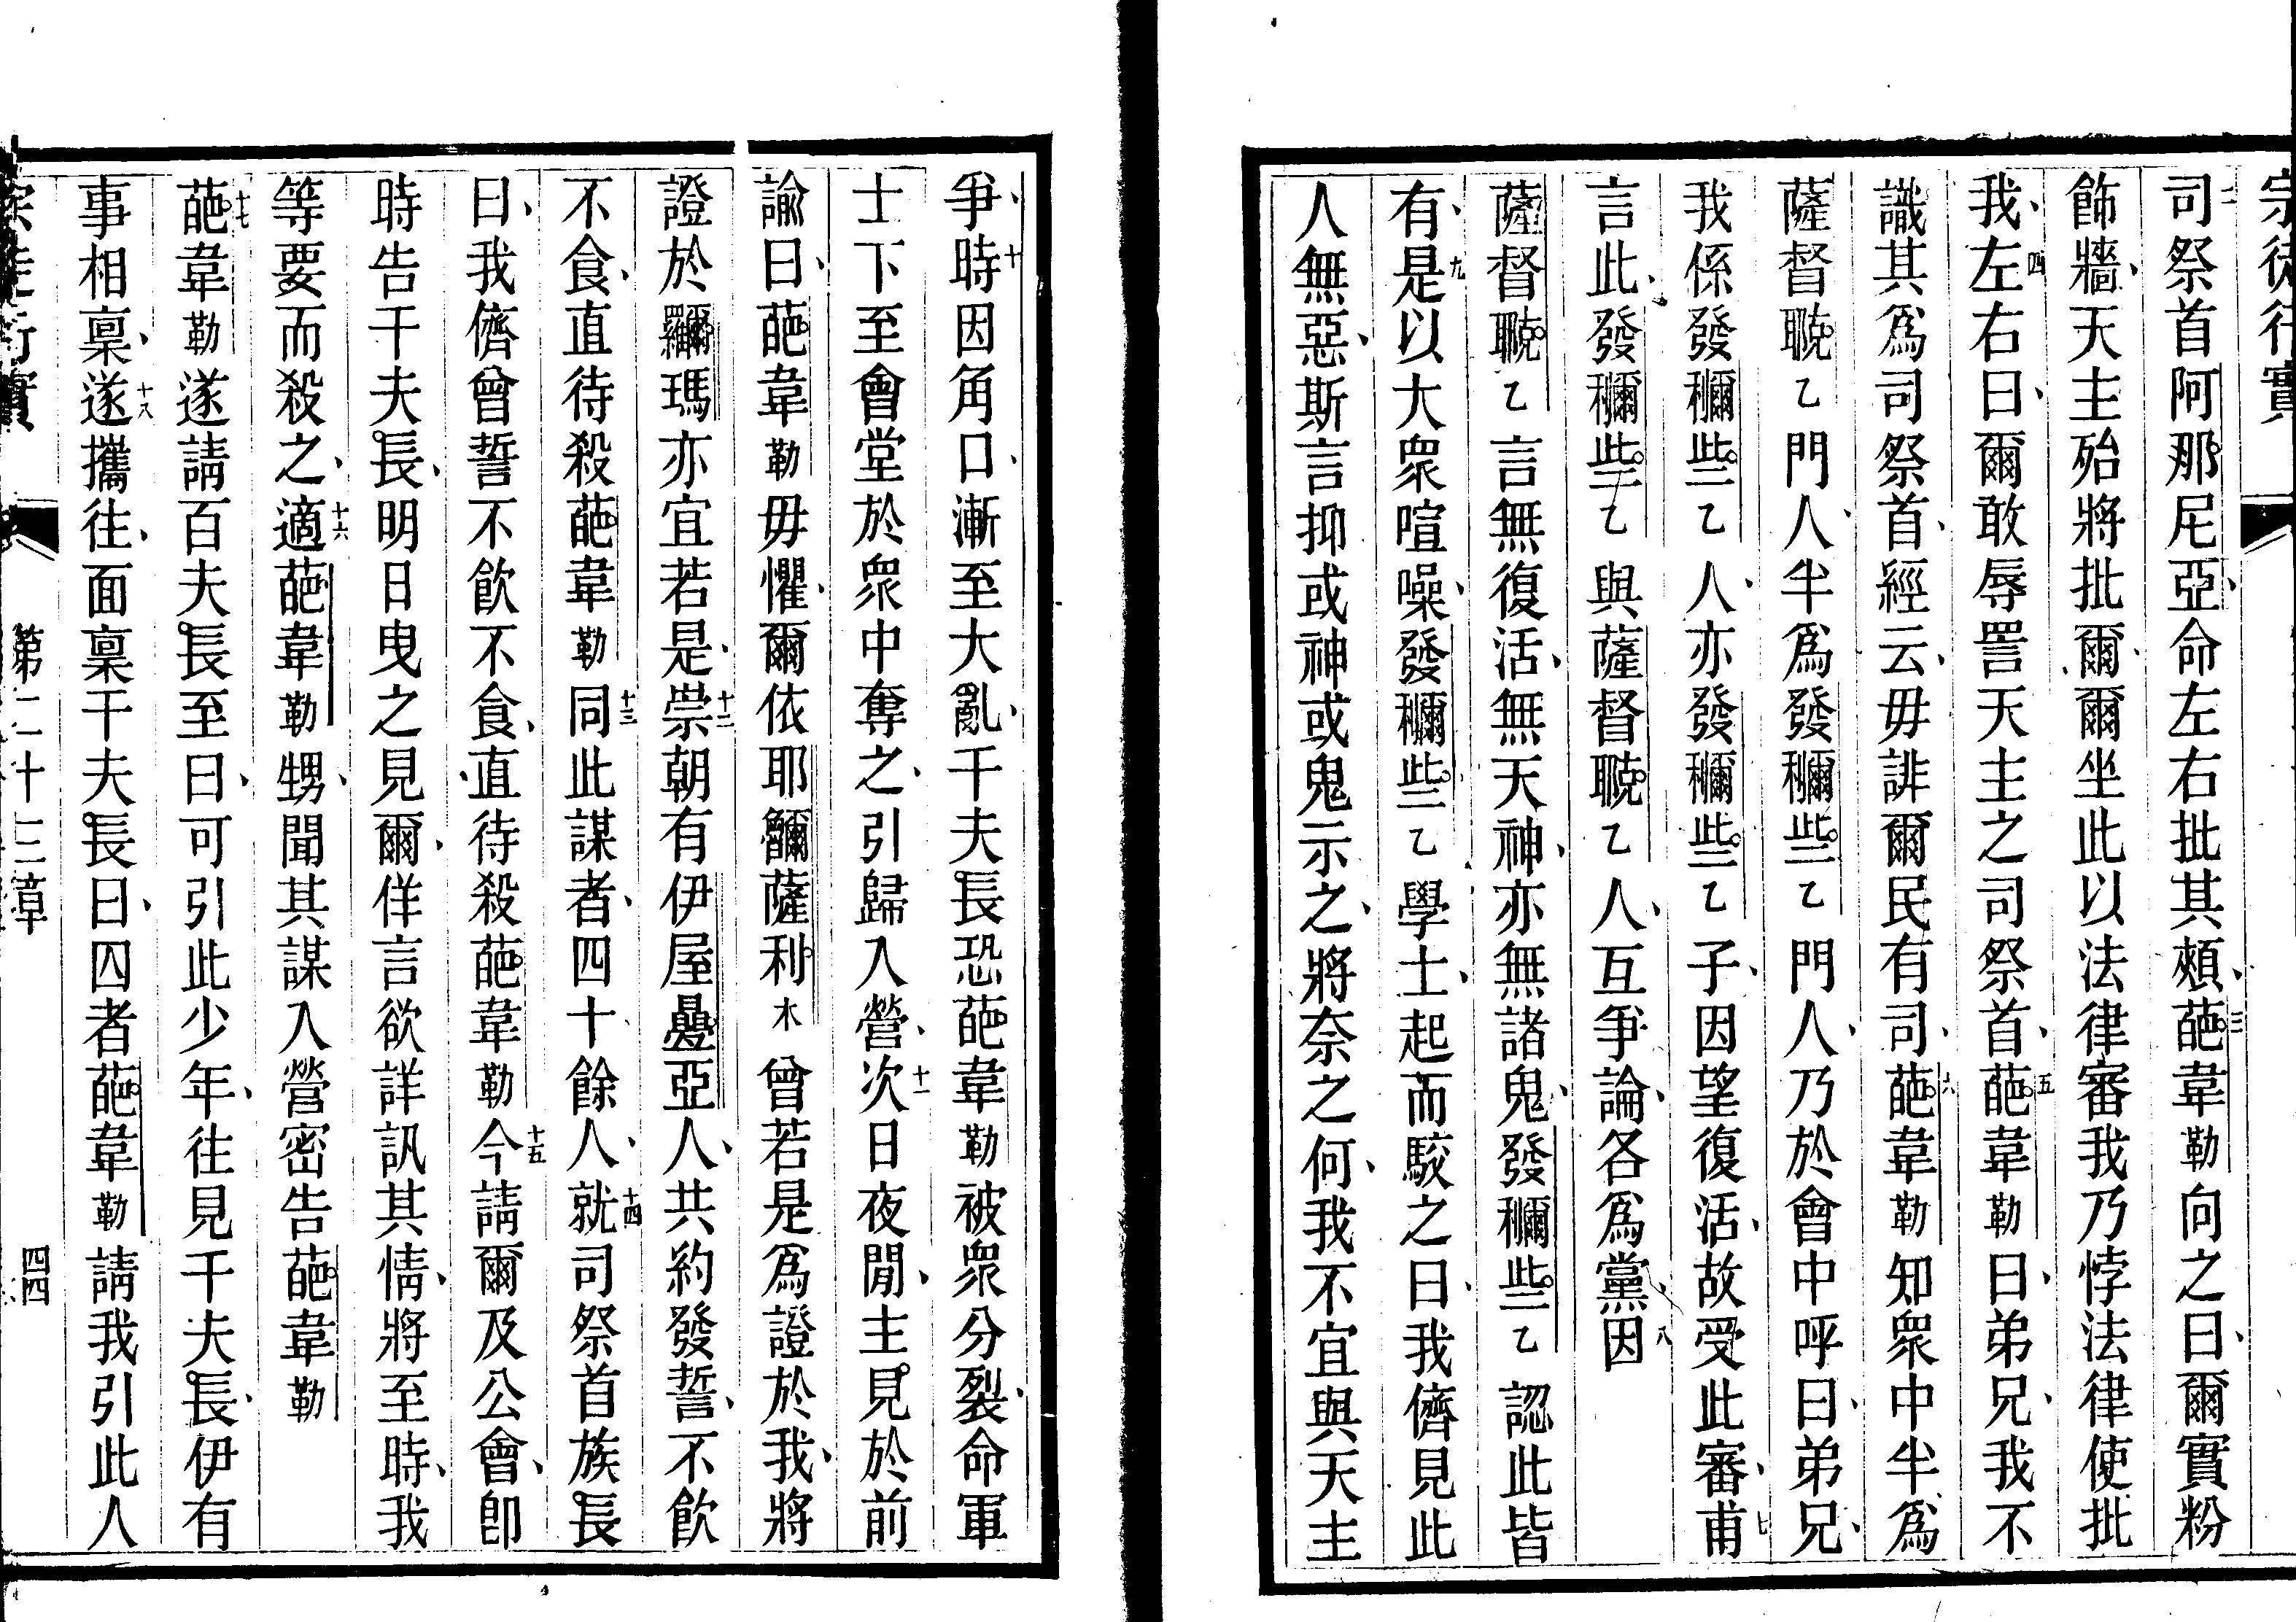 宗徒行實
司祭首阿那尼亞、命左右批其頰、三葩韋勒向之曰、爾實粉
飾牆、天主殆將批爾、爾坐此以法律審我乃悖法律使批
我、四左右曰、爾敢辱詈天主之司祭首、五葩韋勒曰、弟兄、我不
識其爲司祭首、經云、毋誹爾民有司、六葩韋勒知衆中半爲
薩督聎乙門人、半爲發穪些乙門人、乃於會中呼曰、弟兄、
我係發穪些乙人、亦發穪些乙子、因望復活、故受此審、七甫
言此、發穪些乙與薩督聎乙人、互爭論、各爲黨、八因
薩督聎乙言無復活、無天神、亦無諸鬼、發穪些乙認此皆
有、九是以大衆喧噪、發穪些乙學士、起而駮之曰、我儕見此
人無惡、斯言抑或神或鬼示之、將奈之何、我不宜與天主
爭、十時因角口、漸至大亂、千夫長恐葩韋勒被衆分裂、命軍
士下至會堂於衆中奪之、引歸入營、十一次日夜間、主見於前
諭曰、葩韋勒毋懼、爾依耶薩利木曾若是爲證於我、將
證於瑪亦宜若是、十二崇朝有伊屋亞人、共約發誓、不飲
不食、直待殺葩韋勒、十三同此謀者、四十餘人、十四就司祭首族長
曰、我儕曾誓不飲不食、直待殺葩韋勒、十五今請爾及公會、卽
時告千夫長、明日曳之見爾、佯言欲詳訊其情、將至時、我
等要而殺之、十六適葩韋勒甥、聞其謀入營密告葩韋勒
十七葩韋勒遂請百夫長至曰、可引此少年、往見千夫長、伊有
事相稟、十八遂攜往、面稟千夫長曰、囚者葩韋勒請我引此人
宗徒行實 第二十三章 四四